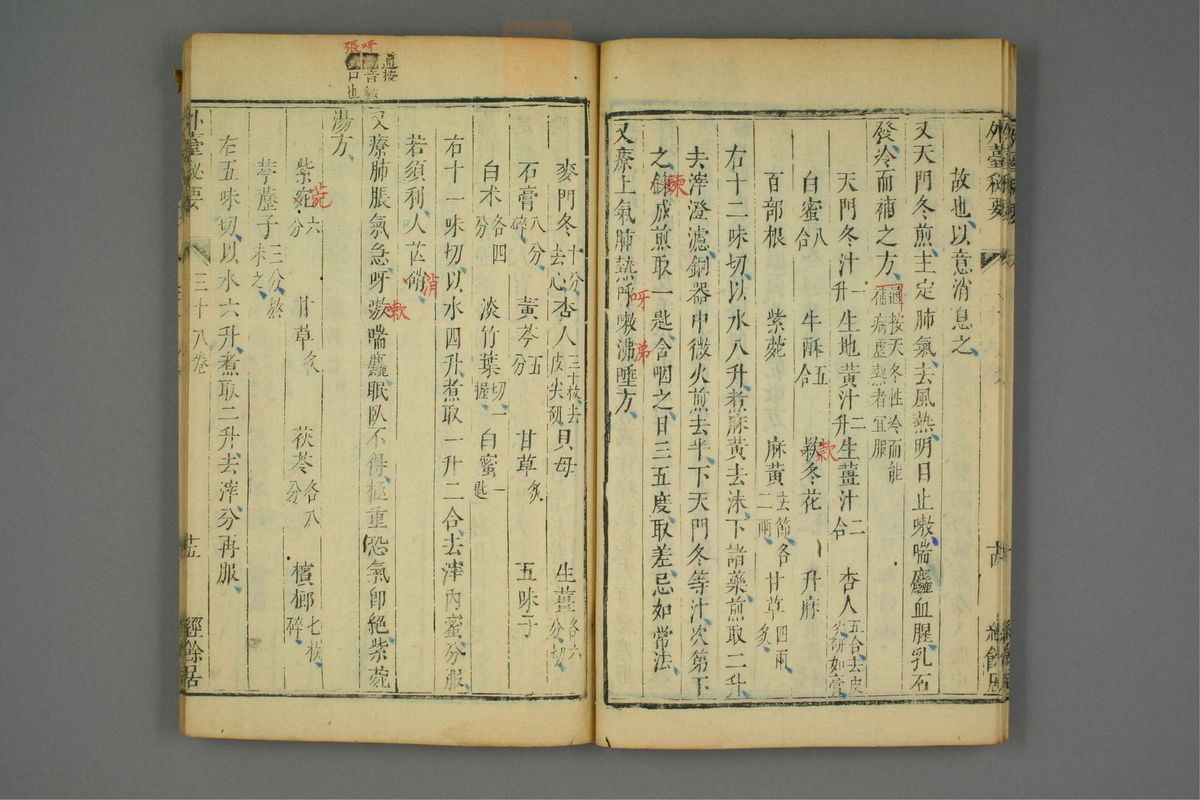 故也以意消息之
又天門冬煎主定肺氣去風熱明日止嗽喘麤血腥乳石
發冷而補之方
通按天冬性冷而能
補病虛熱者宜服
天門冬汁一升 生地黃汁二升 生薑汁二合 杏人五合去皮尖研如膏
白蜜八合 牛酥五合 欵冬花 升麻
款
百部根 紫菀 麻黃去節各二兩 甘草四兩炙
右十二味切以水八升煮麻黃去沫下諸藥煎取二升
去滓澄濾銅器中微火煎去半下天門冬等汁次第下
之鍊成煎取一匙含咽之日三五度取差忌如常法
又療上氣肺熱呼嗽沸唾方
呀
弟
外臺秘要
經餘居
通按
呀
張
口也
麥門冬十分去心 杏人三十枚去皮尖研 貝母 生薑各六分切
石膏八分碎 黃芩五分 甘草炙 五味子
白朮各四分 淡竹葉切一握 白蜜一匙
右十一味切以水四升煮取一升二合去滓內蜜分服
若須利人芒硝
消
又療肺脹氣急呀嗽喘麤眠臥不得極重恐氣卽絕紫菀
嗽
湯方
紫菀六分 甘草炙 茯苓各八分 檳榔七枚碎
菀
葶藶子三分熬末之
右五味切以水六升煮取二升去滓分再服
外臺秘要
三十八卷
經餘居